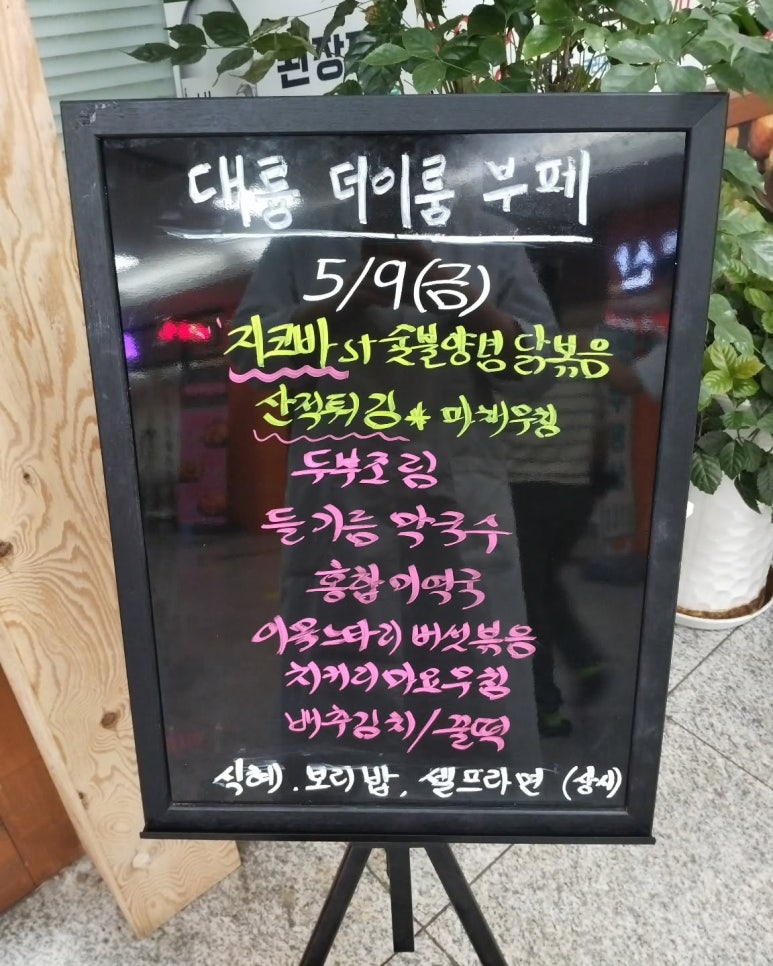 된장
대륭 더이룸 부페
5/9(금)
지코바st 숯불양념닭볶음
산적튀김 * 파채무침
두부조림
들기름 막국수
홍합미역국
어묵느타리버섯볶음
치커리마요무침
배추김치/꿀떡
식혜. 보리밥, 셀프라면 (상시)